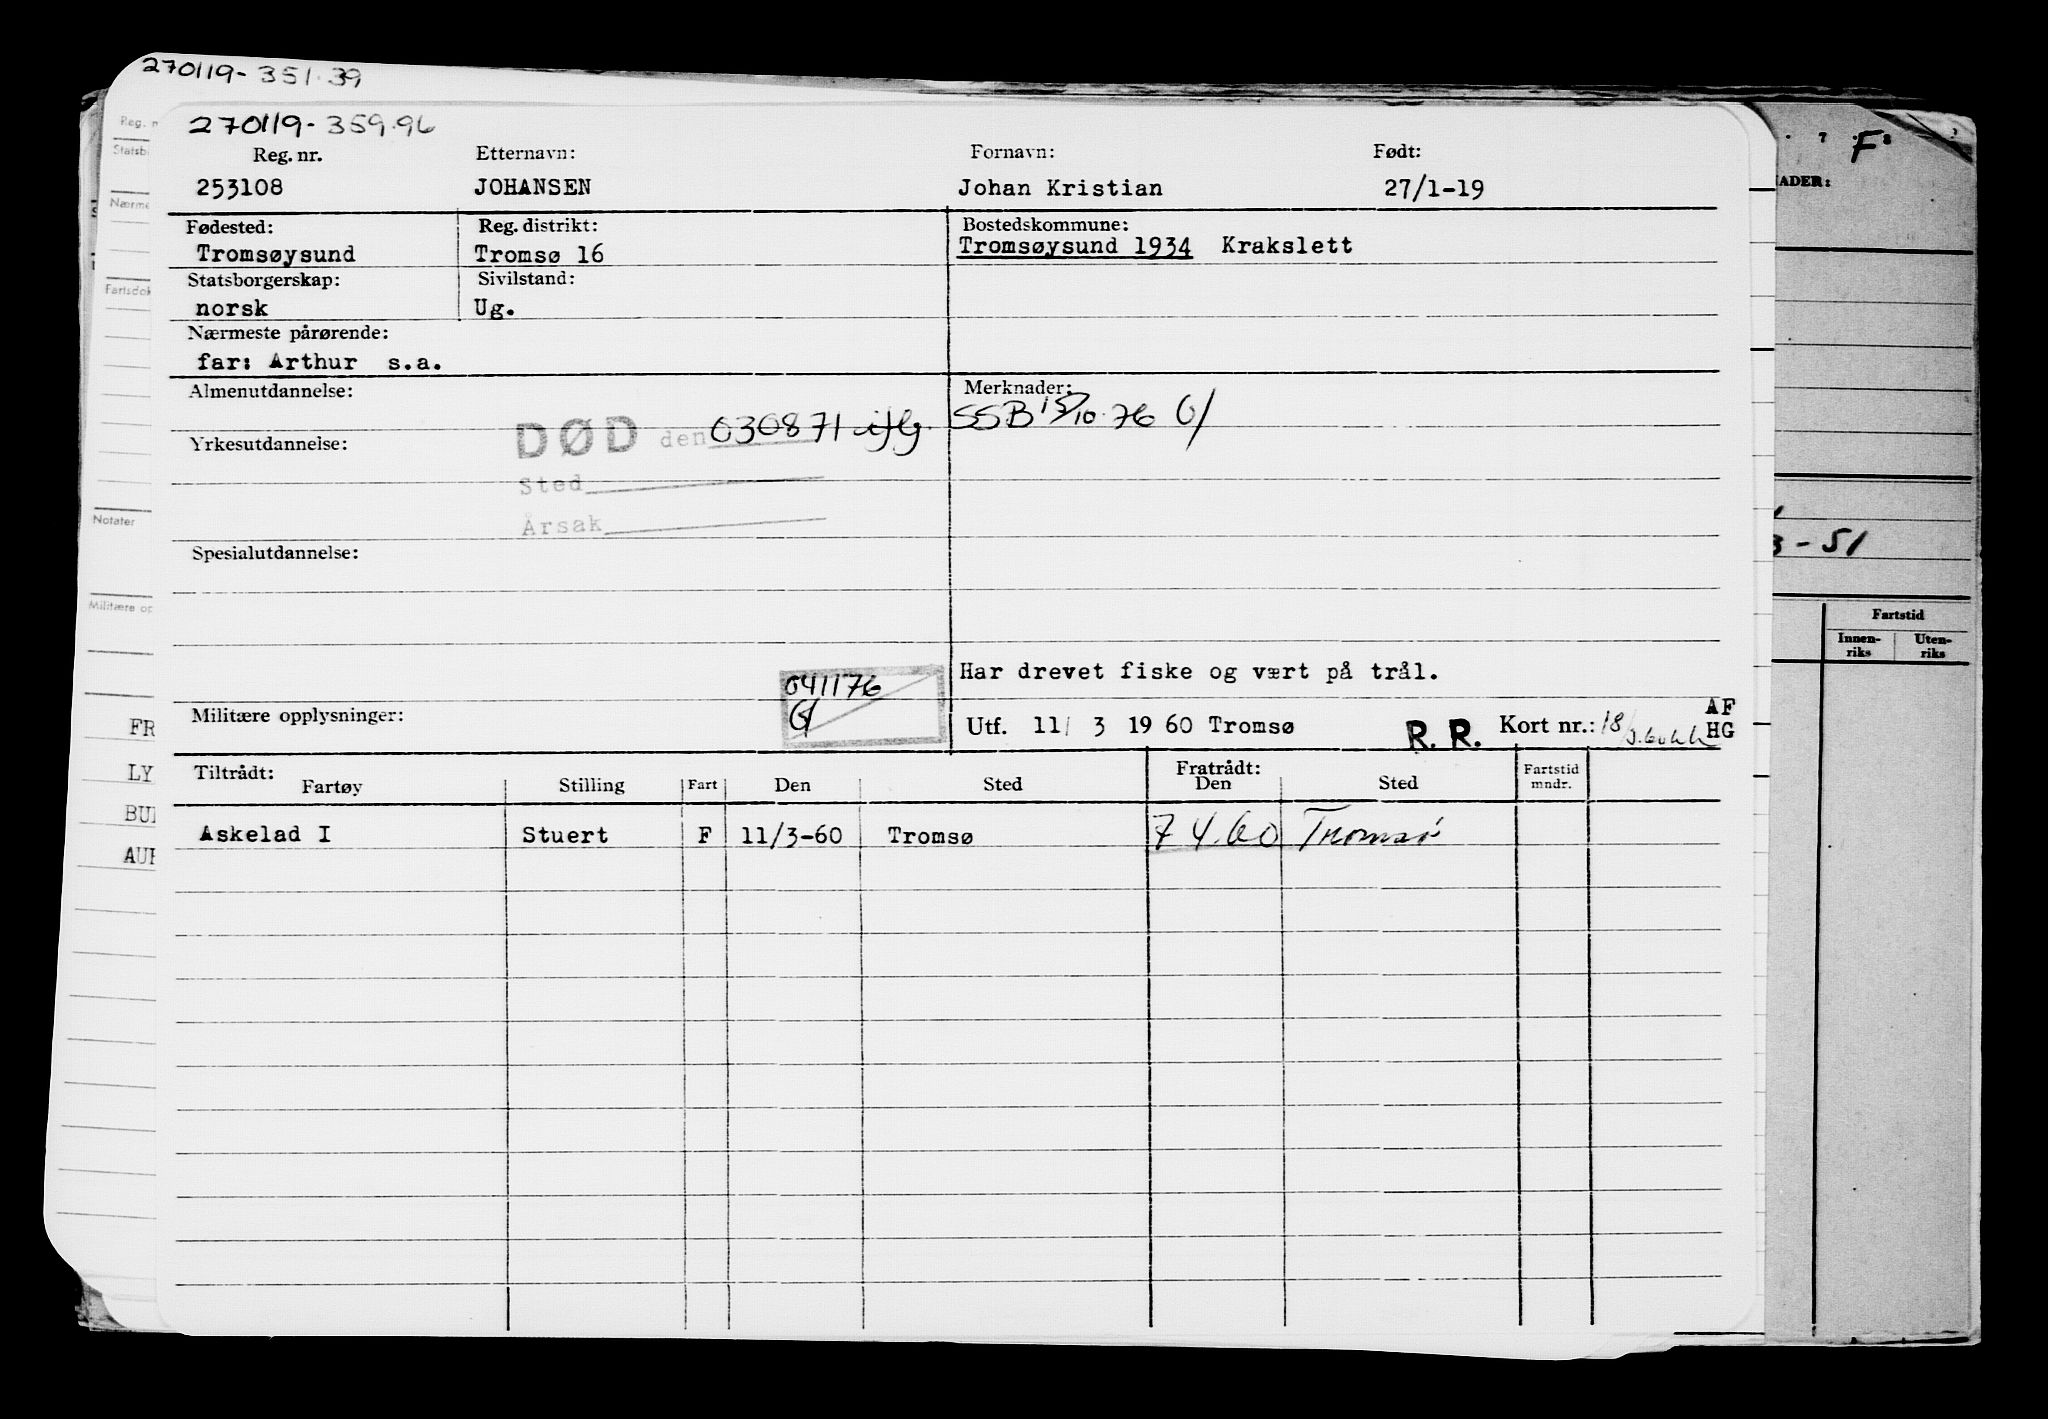 270119-351.39
270119-359.96
Reg. nr. Etternavn: Fornavn: Født:
253108 JOHANSEN Johan Kristian 27/1-19
Fødested: Reg. distrikt: Bostedskommune:
Tromsøysund Tromsø 16 Tromsøysund 1934 Krakslett
Statsborgerskap: Sivilstand:
norsk Ug.
Nærmeste pårørende:
far: Arthur s.a.
Almenutdannelse: Merknader:
DØD den 030871 iflg. SSB 15/10.76
Yrkesutdannelse:
Sted
Årsak
Spesialutdannelse:
Har drevet fiske og vært på trål.
041176
Militære opplysninger: Utf. 11/ 3 19 60 Tromsø R. R. Kort nr.: 18/3.60 AF
HG
Tiltrådt: Fratrådt:
Fartøy Stilling Fart Den Sted Den Sted Fartstid mndr.
Askelad I Stuert F 11/3-60 Tromsø 7 4.60 Tromsø
Statsb
Nærme
Fartsdok
Notater
Militære op
FR
LY
AUR
7 F
NADER:
3-51
Fartstid
Innen-riks Uten-riks